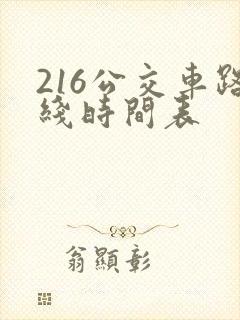 216公交車路
綫時間表
翁顯彰